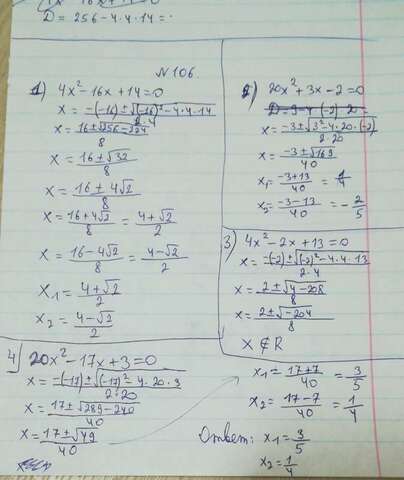 D = 256 - 4·4·14 =
N106.
1) 4x² - 16x + 14 = 0
x = -(-16) ± √(-16)² - 4·4·14 / 2·4
x = 16 ± √256 - 224 / 8
x = 16 ± √32 / 8
x = 16 ± 4√2 / 8
x = 16 + 4√2 / 8 = 4 + √2 / 2
x = 16 - 4√2 / 8 = 4 - √2 / 2
x₁ = 4 + √2 / 2
x₂ = 4 - √2 / 2
2) 20x² + 3x - 2 = 0
x = -3 ± √3² - 4·20·(-2) / 2·20
x = -3 ± √169 / 40
x₁ = -3 + 13 / 40 = 1/4
x₂ = -3 - 13 / 40 = -2/5
3) 4x² - 2x + 13 = 0
x = -(-2) ± √(-2)² - 4·4·13 / 2·4
x = 2 ± √4 - 208 / 8
x = 2 ± √-204 / 8
x ∉ R
4) 20x² - 17x + 3 = 0
x = -(-17) ± √(-17)² - 4·20·3 / 2·20
x = 17 ± √289 - 240 / 40
x = 17 ± √49 / 40
x₁ = 17 + 7 / 40 = 3/5
x₂ = 17 - 7 / 40 = 1/4
Ответ: x₁ = 3/5
x₂ = 1/4